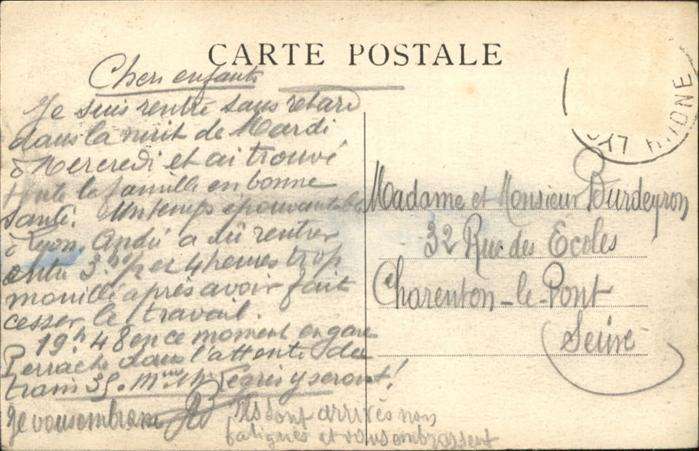 CARTE POSTALE
Chers enfants
Je suis rentré sans retard
dans la nuit de Mardi
à Mercredi et ai trouvé
toute la famille en bonne
santé. Un temps épouvantable
à Lyon, André a dû rentrer
entre 3h et 4 heures trop
mouillé après avoir fait
cesser le travail.
19h48 en ce moment en gare
Perrache dans l'attente du
train 35. Mme Mr y seront!
Je vous embrasse
Ils sont arrivés non
fatigués et vous embrassent
LYON RHONE
Madame et Monsieur Burdeyron
32 Rue des Ecoles
Charenton-le-Pont
Seine